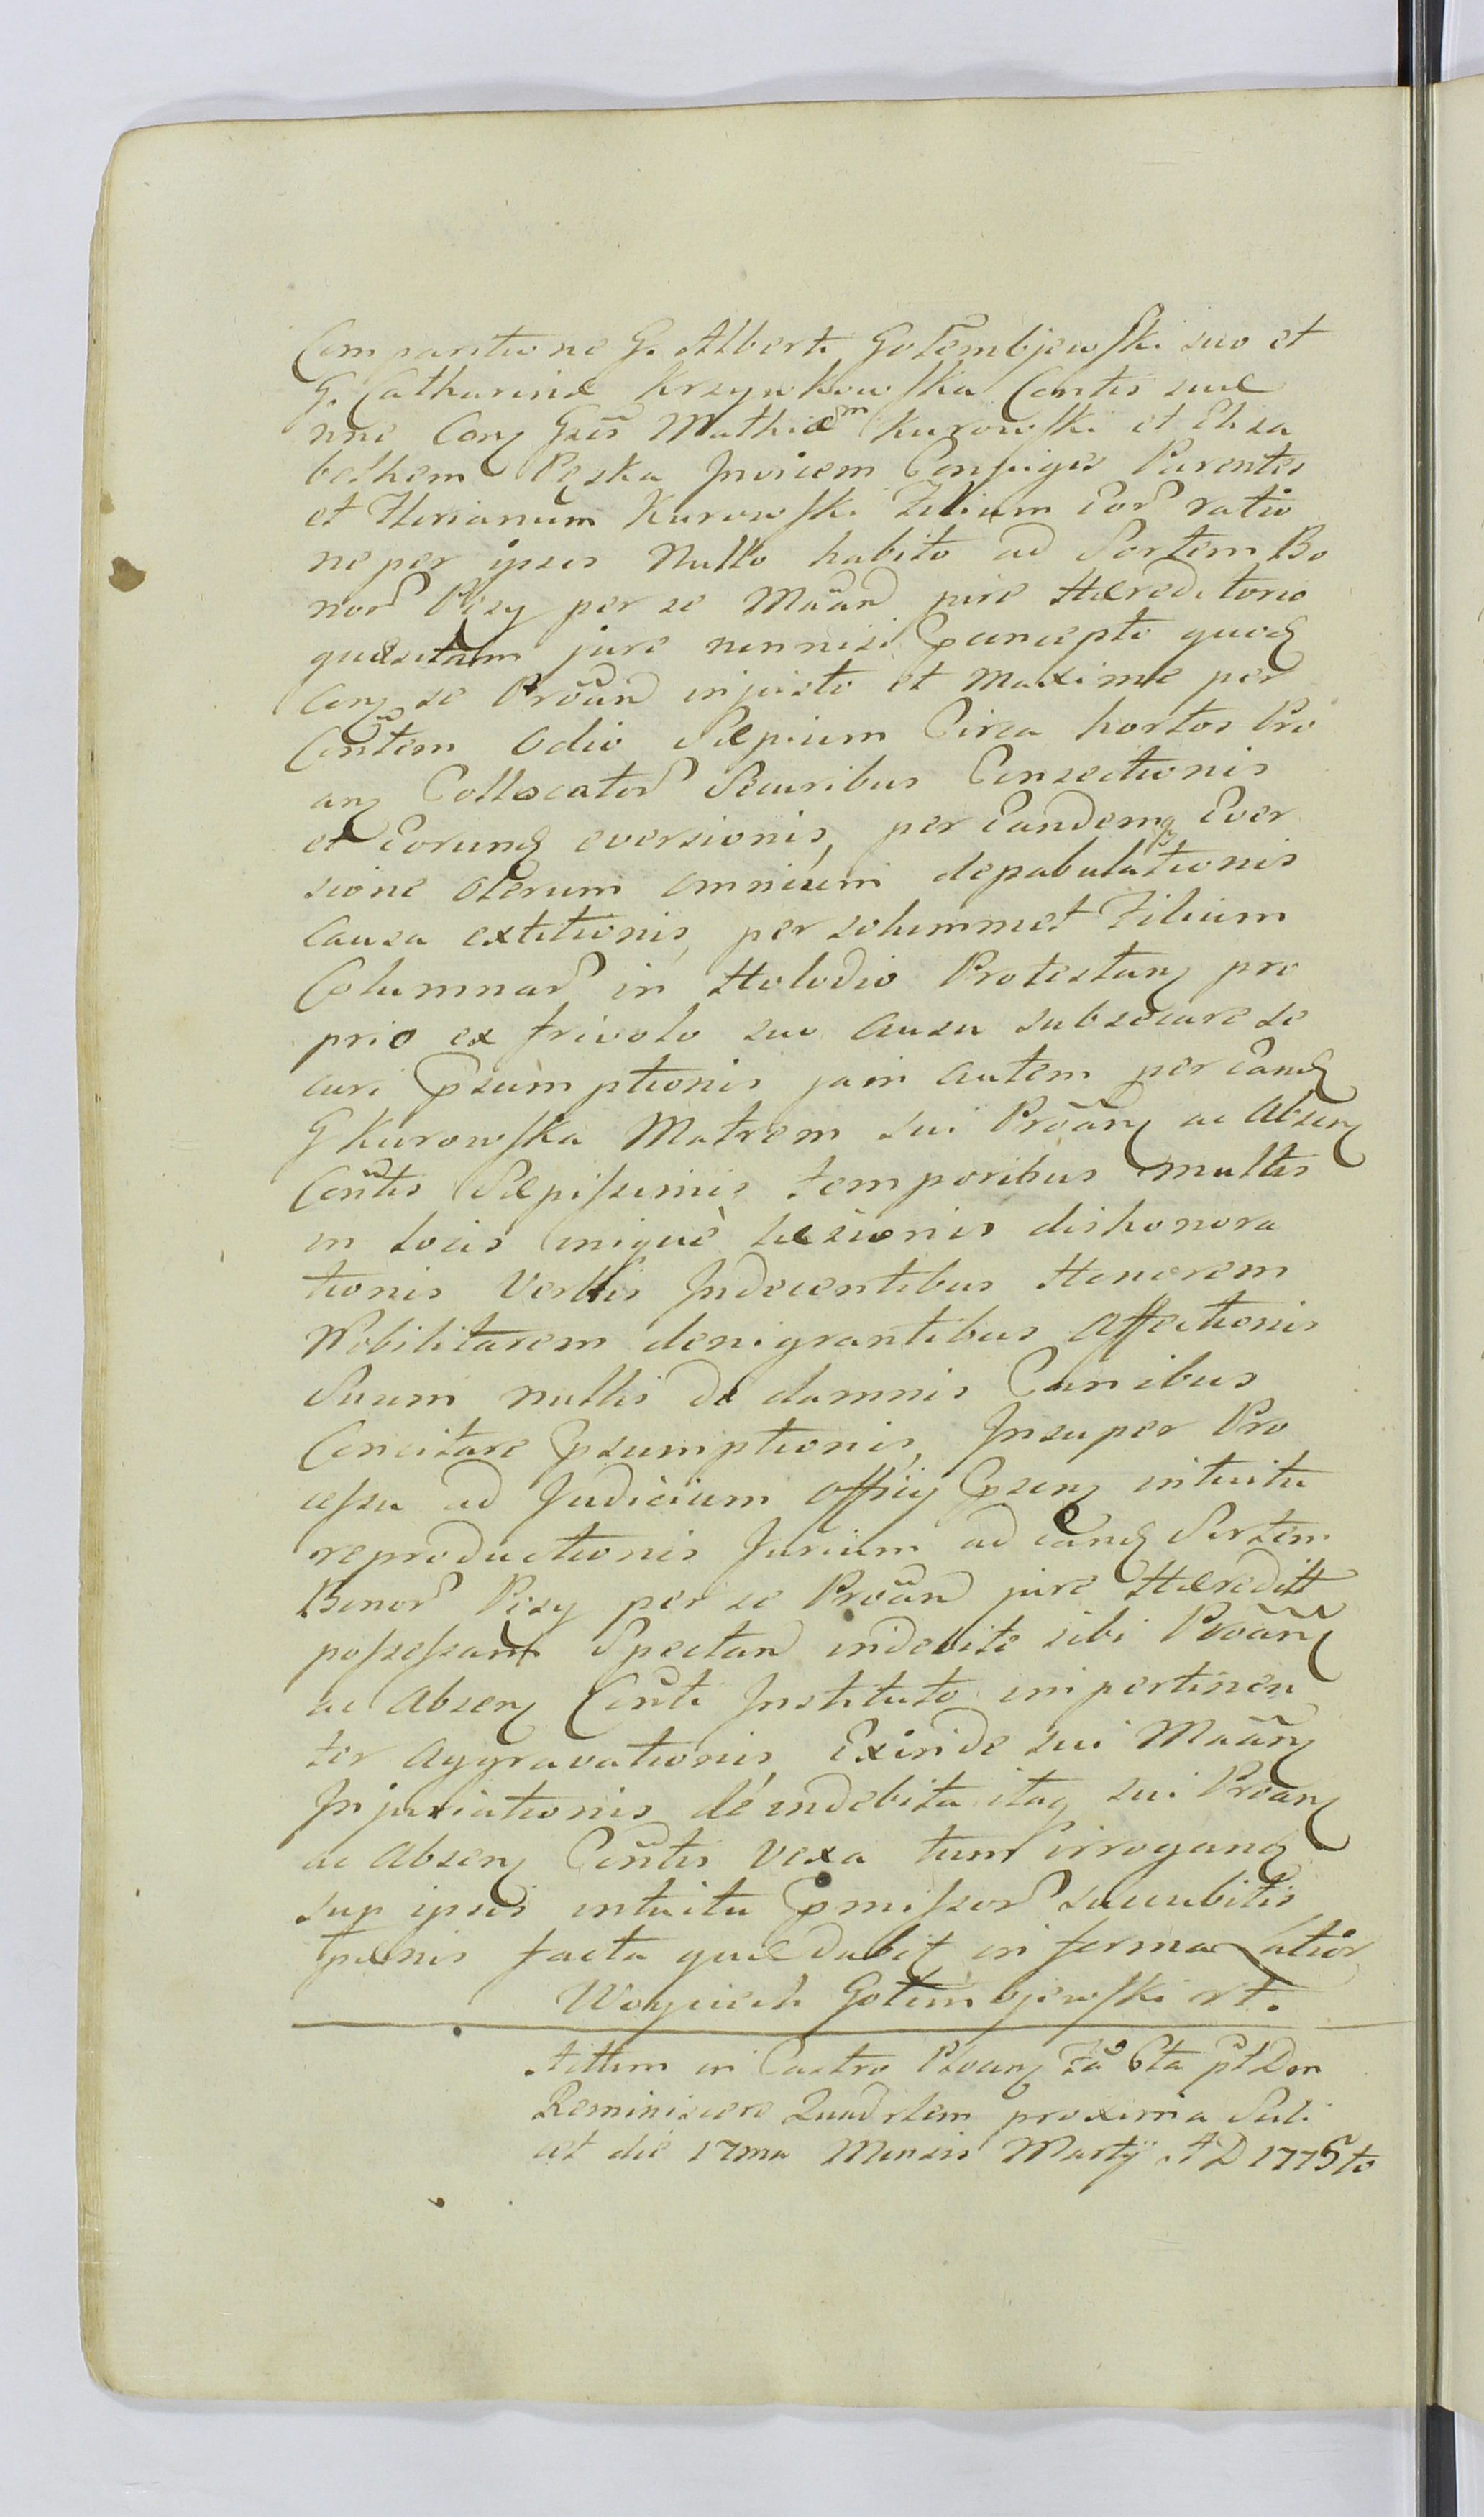 Comparitione G. Alberti Gołembjewski suo et
G. Catharinæ Krzynkowska Contis suæ
nne Conz Gzes Mathiæm Kurowski et Eliza
bethem Pęska Invicem Conjuges Parentes
et Florianum Kurowski Filium Eor ratio
ne per ipsos Nullo habito ad Sortem Bo
nor Pęzy per se Mãnd jure Hæreditorio
quæsitam jure nonnisi Pconcepto quod
Conz se Prõãnd injusto et Maxime per
Contem Odio Sæpium Circa hortos Pro
anz Collocator Securibus Consectionis
et Eorund eversionis, per Eandemq Ever
sione olerum omnium depabulationis
causa extitionis, per solummet Filium
Columnar in Holodio Protestanz pro
prio ex frivolo suo Ausu subsecare se
curi Psumptionis jam autem per Eand
G Kurowska Matrem sui Prõãnz ac Absenz
Contis Sæpissimis temporibus multis
in locis iniquè læsionis dishonora
tionis Verbis Indecentibus Honorem
Nobilitarem denigrantibus Affectionis
Suum nullis de damnis Canibus
Concitare Psumptionis, Insuper Pro
cessu ad Judicium Officij Psenz intuitu
reproductionis Jurium ad eand Sortem
Bonor Pęzy per se Prõãnd jure Hæreditt
possessam Spectand indebite sibi Prõãnz
ac Absenz Conti Instituto impertinen
ter Aggravationis, Exinde sui Mãanz
Injuriationis de indebita itaq sui Proanz
ac Absenz Contis Vexa tum irrogand
sup ipsos intuitu Pmissor succubitis
pænis facta quæ dabit in forma Latior
Woyciech Gołembjewski rt.
Attum in Castro Ploanz Fã 6ta pt Don
Reminiscere Quadrlem proxima Scili
cet die 17ma Mensis Martij AD 1775to